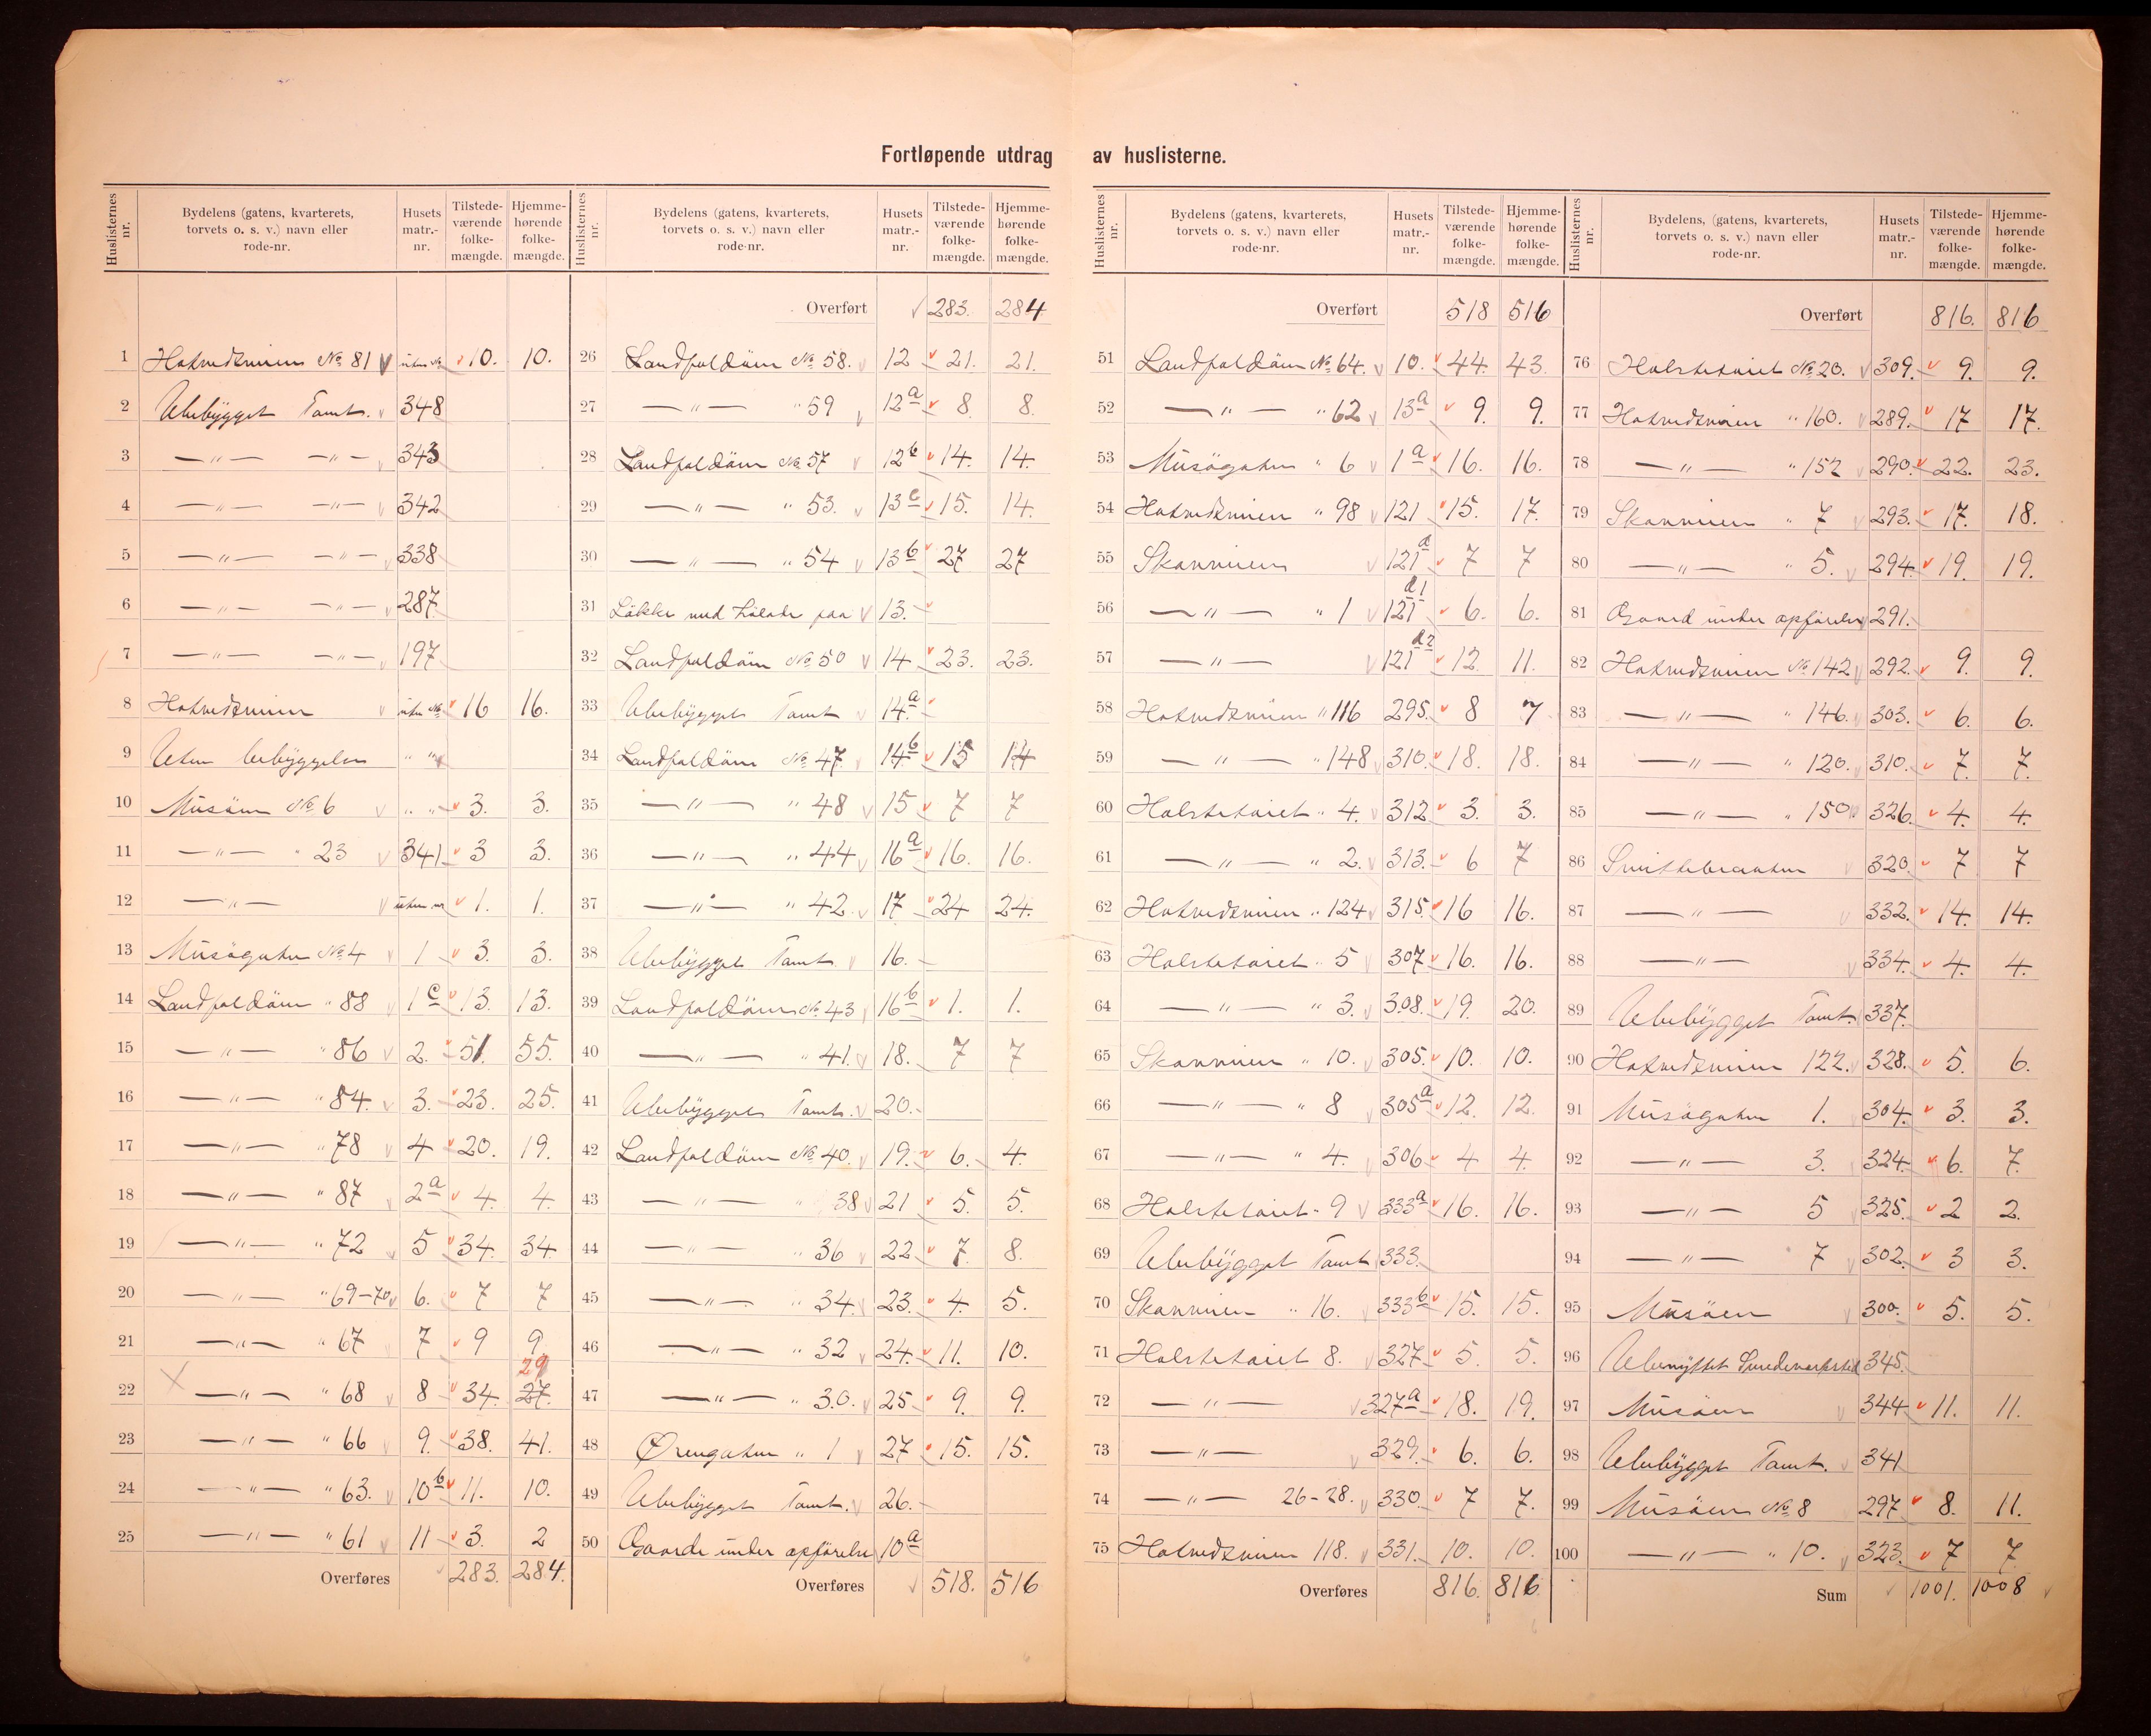 Fortløpende utdrag av huslisterne.
Huslisternes nr. Bydelens (gatens, kvarterets, torvets o. s. v.) navn eller rode-nr. Husets matr.-nr. Tilstedeværende folkemængde. Hjemmehørende folkemængde.
1 Hotvedtveien No 81 uten No 10. 10.
2 Ubebygget Tomt. 348
3 —"— —"— 343
4 —"— —"— 342
5 —"— —"— 338
6 —"— —"— 287
7 —"— —"— 197
8 Hotvedtveien uten No 16 16.
9 Uten bebyggelse " "
10 Musøen No 6 " " 3. 3.
11 —"— " 23 341 3 3.
12 —"— uten nr 1. 1.
13 Musøgaten No 4 1 3. 3.
14 Landfaldöen " 88 1c 13. 13.
15 —"— " 86 2. 51. 55.
16 —"— " 84. 3. 23. 25.
17 —"— " 78 4 20. 19.
18 —"— " 87 2a 4. 4.
19 —"— " 72 5 34. 34
20 —"— " 69-70 6. 7 7
21 —"— " 67 7 9 9
22 —"— " 68 8 34. 27. 29
23 —"— " 66 9. 38. 41.
24 —"— " 63. 10b 11. 10.
25 —"— " 61 11 3. 2
Overføres 283. 284.
Huslisternes nr. Bydelens (gatens, kvarterets, torvets o. s. v.) navn eller rode-nr. Husets matr.-nr. Tilstedeværende folkemængde. Hjemmehørende folkemængde.
Overført 283. 284
26 Landfaldöen No 58. 12 21. 21.
27 —"— " 59 12a 8 8.
28 Landfaldöen No 57 12b 14. 14.
29 —"— " 53. 13c 15. 14.
30 —"— " 54 13b 27 27
31 Løkke med paa 13.
32 Landfaldöen No 50 14 23. 23.
33 Ubebygget Tomt 14a
34 Landfaldöen No 47. 14b 15 14
35 —"— " 48 15 7 7
36 —"— " 44 16a 16. 16.
37 —"— " 42. 17 24 24.
38 Ubebygget Tomt 16.
39 Landfaldöen No 43 16b 1. 1.
40 —"— " 41. 18. 7 7
41 Ubebygget Tomt. 20.
42 Landfaldöen No 40. 19. 6. 4.
43 —"— " 38 21 5. 5.
44 —"— " 36 22 7. 8.
45 —"— " 34. 23. 4. 5.
46 —"— " 32 24. 11. 10.
47 —"— " 30. 25 9. 9.
48 Örengaten " 1 27 15. 15.
49 Ubebygget Tomt. 26.
50 Gaarde under opförelse 10a
Overføres 518. 516
Huslisternes nr. Bydelens (gatens, kvarterets, torvets o. s. v.) navn eller rode-nr. Husets matr.-nr. Tilstedeværende folkemængde. Hjemmehørende folkemængde.
Overført 518 516
51 Landfaldöen No 64. 10. 44. 43.
52 —"— " 62 13a 9. 9.
53 Musögaten " 6 1a 16. 16.
54 Hotvedtveien " 98 121 15. 17.
55 Skanveien 121a 7 7
56 —"— " 1 121d1 6. 6.
57 —"— 121d2 12. 11.
58 Hotvedtveien " 116 295. 8 7
59 —"— " 148 310. 18. 18.
60 Holstetaiet " 4. 312 3. 3.
61 —"— " 2. 313. 6 7
62 Hotvedtveien " 124 315. 16 16.
63 Holstetaiet " 5 307 16. 16.
64 —"— " 3. 308. 19. 20.
65 Skanveien " 10. 305. 10. 10.
66 —"— " 8 305a 12. 12.
67 —"— " 4. 306 4 4.
68 Holstetaiet " 9 333a 16. 16.
69 Ubebygget Tomt 333.
70 Skanveien " 16. 333b 15. 15.
71 Holstetaiet 8. 327 5. 5.
72 —"— 327a 18. 19.
73 —"— 329. 6. 6.
74 —"— 26-28. 330. 7 7.
75 Hotvedtveien 118. 331. 10. 10.
Overføres 816. 816
Huslisternes nr. Bydelens, (gatens, kvarterets, torvets o. s. v.) navn eller rode-nr. Husets matr.-nr. Tilstedeværende folkemængde. Hjemmehørende folkemængde.
Overført 816. 816
76 Holstetaiet No 20. 309. 9. 9.
77 Hotvedtveien " 160. 289. 17 17.
78 —"— " 152 290. 22. 23.
79 Skanveien " 7 293. 17. 18.
80 —"— " 5. 294. 19. 19.
81 Gaard under opförelse 291.
82 Hotvedtveien No 142 292. 9. 9.
83 —"— " 146. 303. 6. 6.
84 —"— " 120. 310. 7. 7.
85 —"— " 150 326. 4. 4.
86 Smittebraaten 320. 7 7
87 —"— 332. 14. 14.
88 —"— 334. 4. 4.
89 Ubebygget Tomt. 337.
90 Hotvedtveien 122. 328. 5. 6.
91 Musögaten 1. 304. 3. 3.
92 —"— 3. 324. 6. 7.
93 —"— 5 325. 2 2.
94 —"— 7 302. 3 3.
95 Musöen 300. 5. 5.
96 Ubenyttet 345.
97 Musöen 344 11. 11.
98 Ubebygget Tomt. 341
99 Musöen No 8 297 8. 11.
100 —"— " 10. 323. 7 7
Sum 1001. 1008